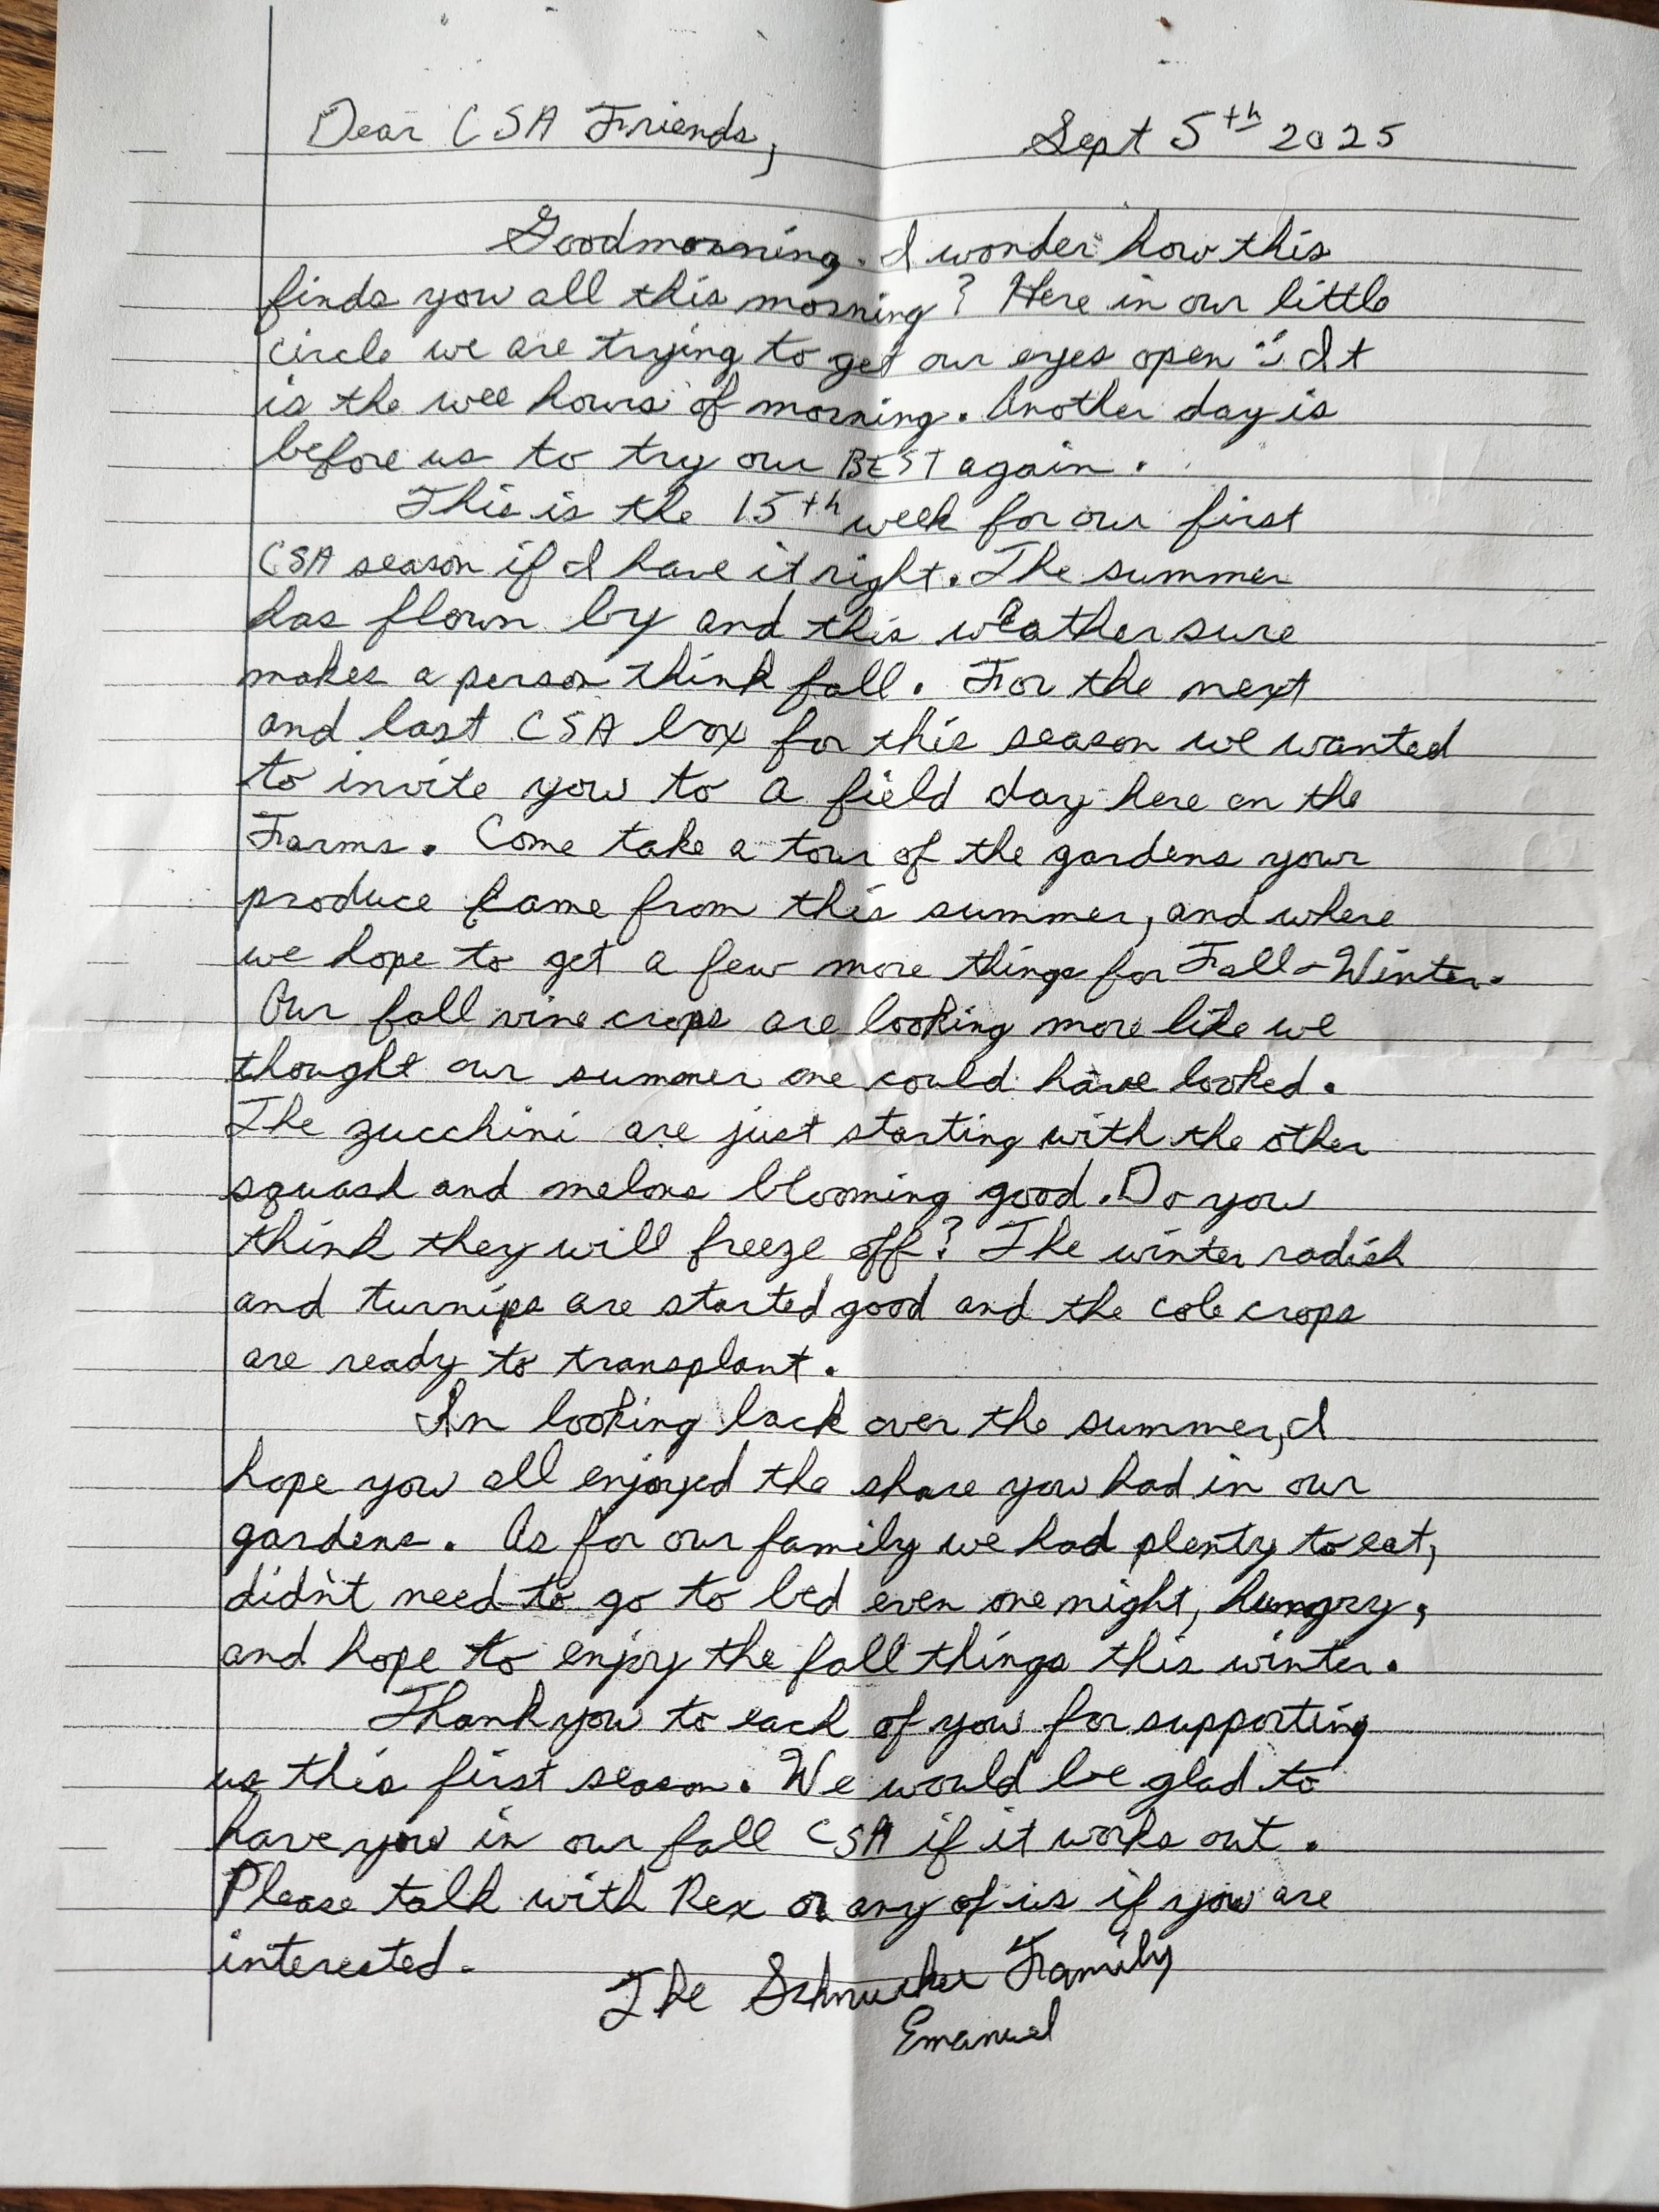 Dear CSA Friends, Sept 5th 2025
Goodmorning. I wonder how this
finds you all this morning? Here in our little
circle we are trying to get our eyes open :) It
is the wee hours of morning. Another day is
before us to try our BEST again.
This is the 15th week for our first
CSA season if I have it right. The summer
has flown by and this weather sure
makes a person think fall. For the next
and last CSA box for this season we wanted
to invite you to a field day here on the
Farms. Come take a tour of the gardens your
produce came from this summer, and where
we hope to get a few more things for Fall-Winter.
Our fall vine crops are looking more like we
thought our summer one could have looked.
The zucchini are just starting with the other
squash and melons blooming good. Do you
think they will freeze off? The winter radish
and turnips are started good and the cole crops
are ready to transplant.
In looking back over the summer, I
hope you all enjoyed the share you had in our
gardens. As for our family we had plenty to eat,
didn't need to go to bed even one night, hungry,
and hope to enjoy the fall things this winter.
Thank you to each of you for supporting
us this first season. We would be glad to
have you in our fall CSA if it works out.
Please talk with Rex or any of us if you are
interested.
The Schmucker Family
Emanuel